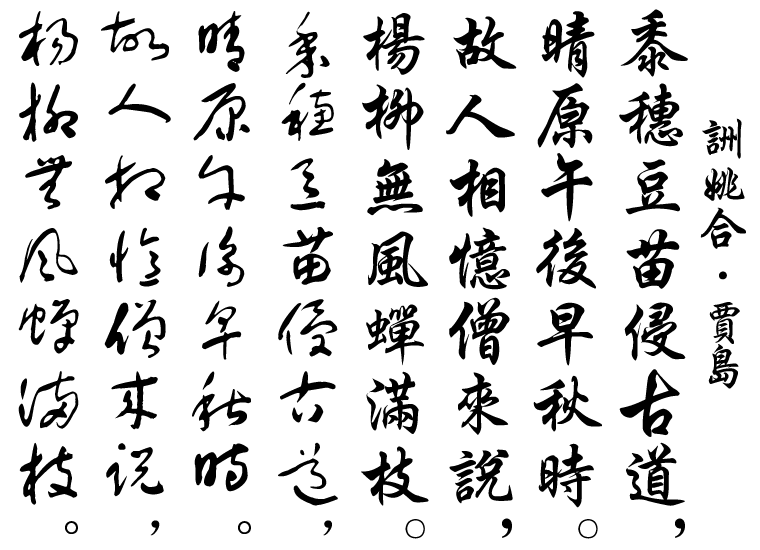 詶姚合·賈島
黍穗豆苗侵古道，
晴原午後早秋時。
故人相憶僧來說，
楊柳無風蟬滿枝。
黍穗豆苗侵古道，
晴原午後早秋時。
故人相憶僧來說，
楊柳無風蟬滿枝。